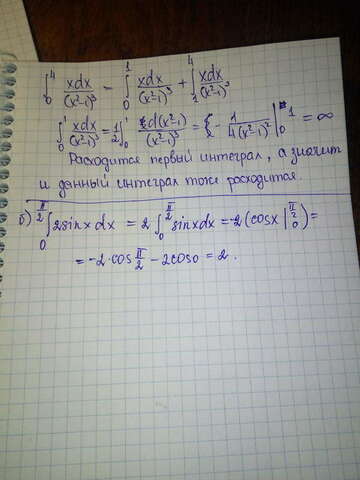 ∫₀⁴ xdx/(x²-1)³ = ∫₀¹ xdx/(x²-1)³ + ∫₁⁴ xdx/(x²-1)³
∫₀¹ xdx/(x²-1)³ = 1/2 ∫₀¹ d(x²-1)/(x²-1)³ = - 1/4(x²-1)² |₀¹ = ∞
Расходится первый интеграл, а значит
и данный интеграл тоже расходится.
б) ∫₀^(π/2) 2sinxdx = 2 ∫₀^(π/2) sinxdx = -2 (cosx |₀^(π/2)) =
= -2·cos π/2 - 2cos0 = 2.